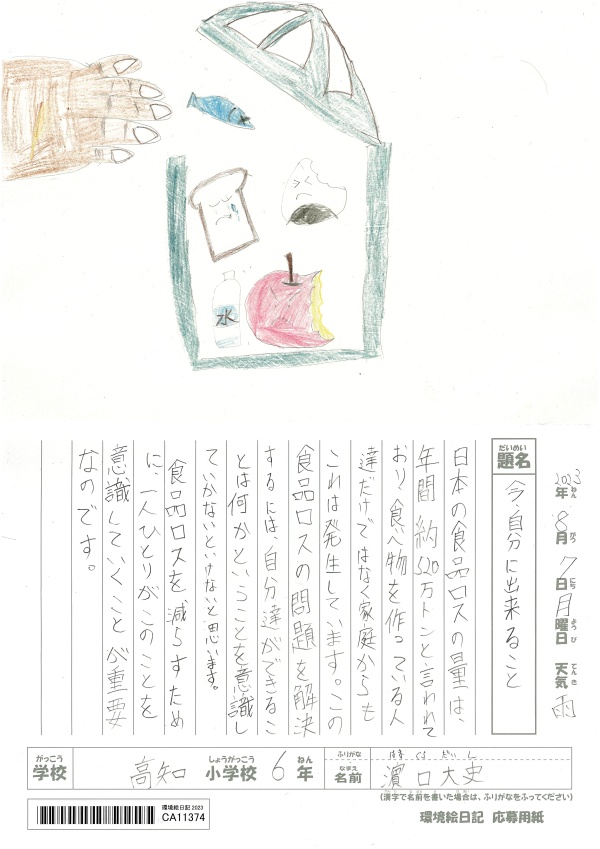 水
2023年 8月 7日 月曜日 天気 雨
ねん がつ にち ようび てんき
だいめい
題名
今、自分に出来ること
日本の食品ロスの量は、
年間約520万トンと言われて
おり、食べ物を作っている人
達だけではなく家庭からも
これは発生しています。この
食品ロスの問題を解決
するには自分達ができるこ
とは何かということを意識し
ていかないといけないと思います。
食品ロスを減らすため
に、一人ひとりがこのことを
意識していくことが重要
なのです。
がっこう
学校
高知
しょうがっこう
小学校
6
ねん
年
ふりがな
はまぐち だいし
なまえ
名前
濵口大史
(漢字で名前を書いた場合は、ふりがなをふってください)
環境絵日記 2023
CA11374
環境絵日記 応募用紙